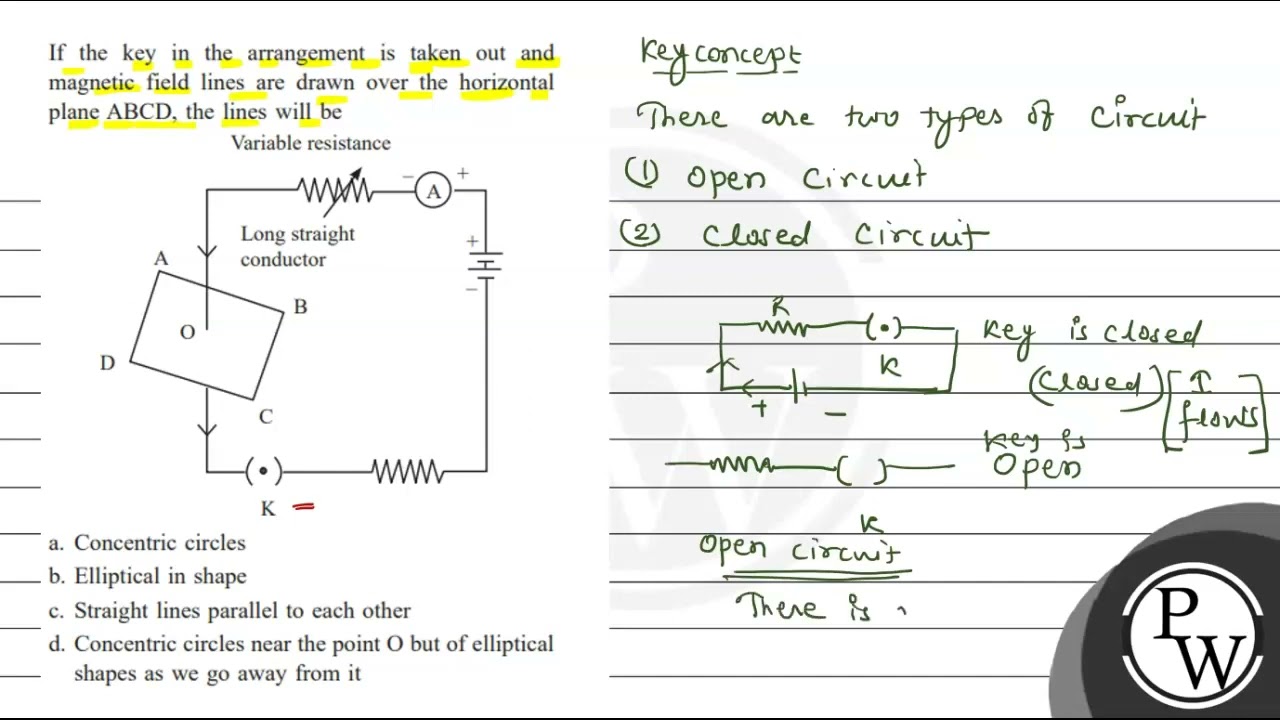 If the key in the arrangement is taken out and
magnetic field lines are drawn over the horizontal
plane ABCD, the lines will be
Variable resistance
− A +
Long straight
conductor
+
−
A
B
O
D
C
K
a. Concentric circles
b. Elliptical in shape
c. Straight lines parallel to each other
d. Concentric circles near the point O but of elliptical
shapes as we go away from it
Key concept
There are two types of circuit
(1) Open circuit
(2) Closed circuit
R
K
+ −
Key is closed
(closed) [I
flows]
Key is
Open
K
Open circuit
There is
PW